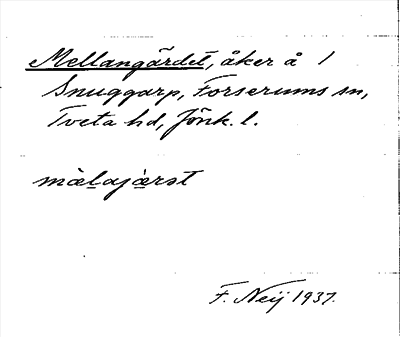 Mellangärdet, åker å 1
Snuggarp, Forserums sn,
Tveta hd, Jönk. l.
mälajärst
F. Neij 1937.